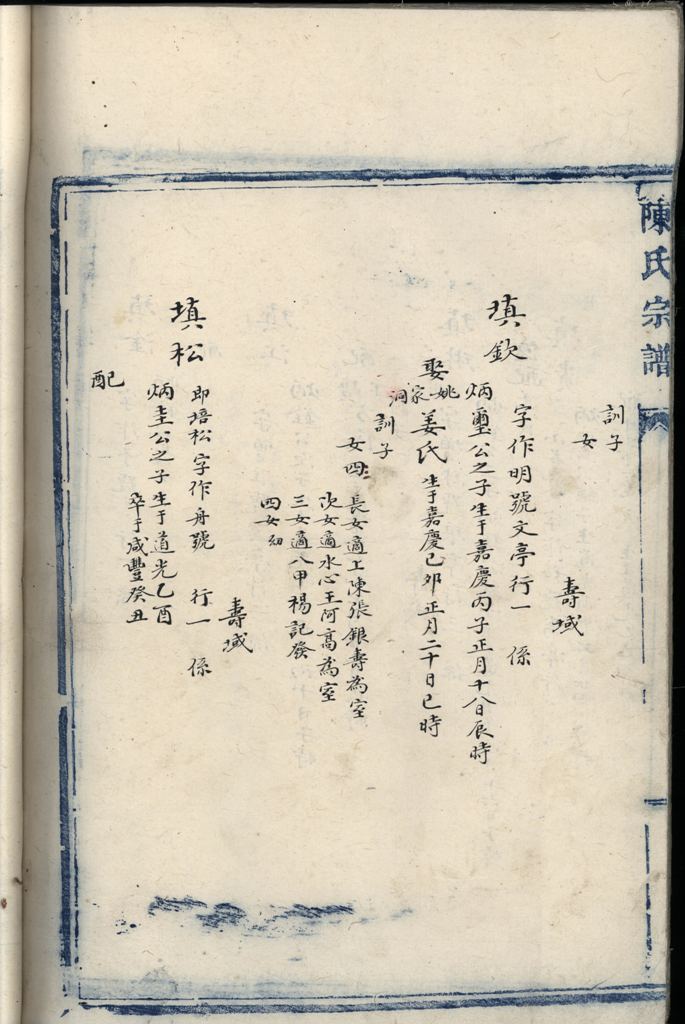 陳氏宗譜
訓子
女
壽域
填欽
字作明號文亭行一係
炳璽公之子生于嘉慶丙子正月十八日辰時
娶姚家洞姜氏生于嘉慶己卯正月二十日巳時
訓子
女四
長女適上陳張銀壽為室
次女適水心王阿高為室
三女適八甲楊記發
四女幼
壽域
填松
即培松字作舟號 行一係
炳圭公之子生于道光乙酉
卒于咸豐癸丑
配